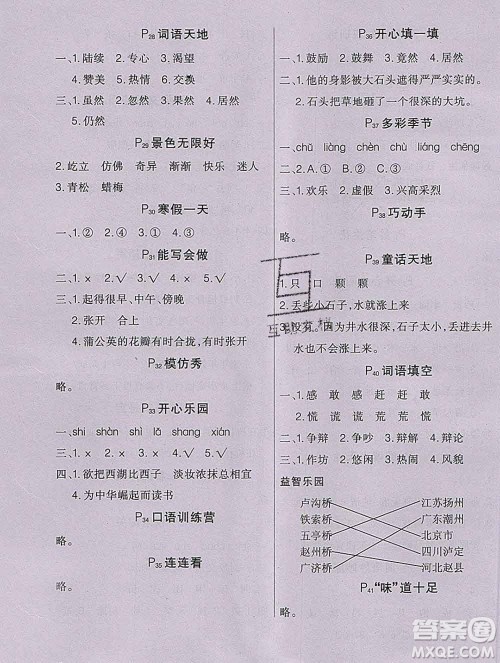 P28 词语天地
一、1.陆续 2.专心 3.渴望
4.赞美 5.热情 6.交换
三、1.虽然 2.忽然 3.果然 4.居然
5.仍然
P29 景色无限好
2.屹立 仿佛 奇异 渐渐 快乐 迷人
3.青松 蜡梅
P30 寒假一天
一、1.① 2.④ 3.② 4.③
P31 能写会做
二、1.× 2.√ 3.× 4.× 5.√ 6.√
三、1.起得很早、中午、傍晚
2.张开 合上
4.蒲公英的花瓣有时张开，有时合上。
P32 模仿秀
略。
P33 开心乐园
一、shi shàn shì là piàn sǎn
四、1.欲把西湖比西子 淡妆浓抹总相宜
2.为中华崛起而读书
P34 口语训练营
略。
P35 连连看
略。
P36 开心填一填
一、1.鼓励 2.鼓舞 3.竟然 4.居然
二、1.他的身影被大石头遮得严严实实的。
2.石头把草地砸了一个很深的大坑。
P37 多彩季节
一、chū liàng chèn pū liáng chéng
二、2.A.① B.② C.③
三、1.欢乐 2.虚假 3.兴高采烈
P38 巧动手
略。
P39 童话天地
1.只 口 颗 颗
2.丢些小石子，水就涨上来
3.没有。因为井水很深，石子太小，丢进去井
水也不会涨上来。
P40 词语填空
一、1.感 敢 敢 赶 赶 敢
2.慌 谎 荒 荒 荒 慌
二、1.争辩 2.争吵 3.辩解 4.辩论
三、1.仿 2.悠闲 3.热闹 4.风貌
益智乐园
卢沟桥 江苏扬州
铁索桥 广东潮州
五亭桥 北京市
赵州桥 四川泸定
广济桥 河北赵县
P41 “味”道十足
略。
答案圈
MXQE.COM